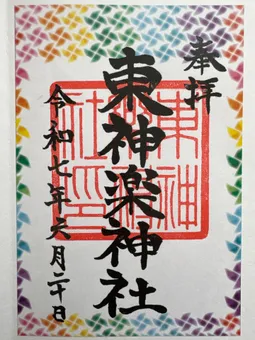 奉拝
東神楽神社
令和七年元月二十日
東神楽神社印